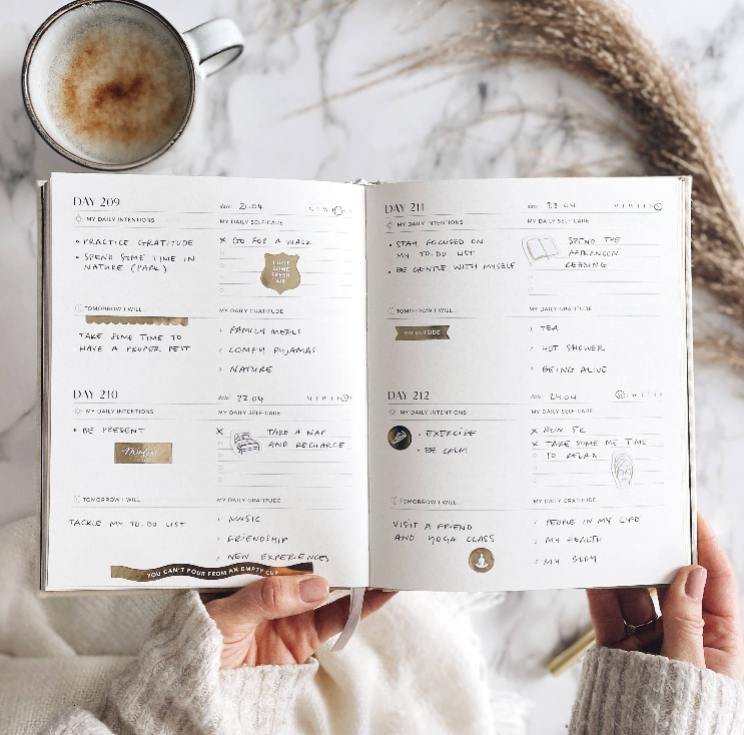 DAY 209
DATE: 21.04
MY DAILY INTENTIONS
MY DAILY SELF-CARE
• PRACTICE GRATITUDE
• SPEND SOME TIME IN
NATURE (PARK)
X GO FOR A WALK
I GOT
SOME
FRESH
AIR
TOMORROW I WILL...
MY DAILY GRATITUDE
TAKE SOME TIME TO
HAVE A PROPER REST
› FAMILY MEALS
› COMFY PYJAMAS
› NATURE
DAY 210
DATE: 22.04
MY DAILY INTENTIONS
MY DAILY SELF-CARE
• BE PRESENT
X TAKE A NAP
AND RECHARGE
TOMORROW I WILL...
MY DAILY GRATITUDE
TACKLE MY TO-DO LIST
› MUSIC
› FRIENDSHIP
› NEW EXPERIENCES
YOU CAN'T POUR FROM AN EMPTY CUP
DAY 211
DATE: 23.04
MY DAILY INTENTIONS
MY DAILY SELF-CARE
• STAY FOCUSED ON
MY TO-DO LIST
• BE GENTLE WITH MYSELF
SPEND THE
AFTERNOON
READING
TOMORROW I WILL...
MY DAILY GRATITUDE
› TEA
› HOT SHOWER
› BEING ALIVE
DAY 212
DATE: 24.04
MY DAILY INTENTIONS
MY DAILY SELF-CARE
• EXERCISE
• BE CALM
X RUN 5K
X TAKE SOME ME TIME
TO RELAX
TOMORROW I WILL...
MY DAILY GRATITUDE
VISIT A FRIEND
AND YOGA CLASS
› PEOPLE IN MY LIFE
› MY HEALTH
› MY BODY